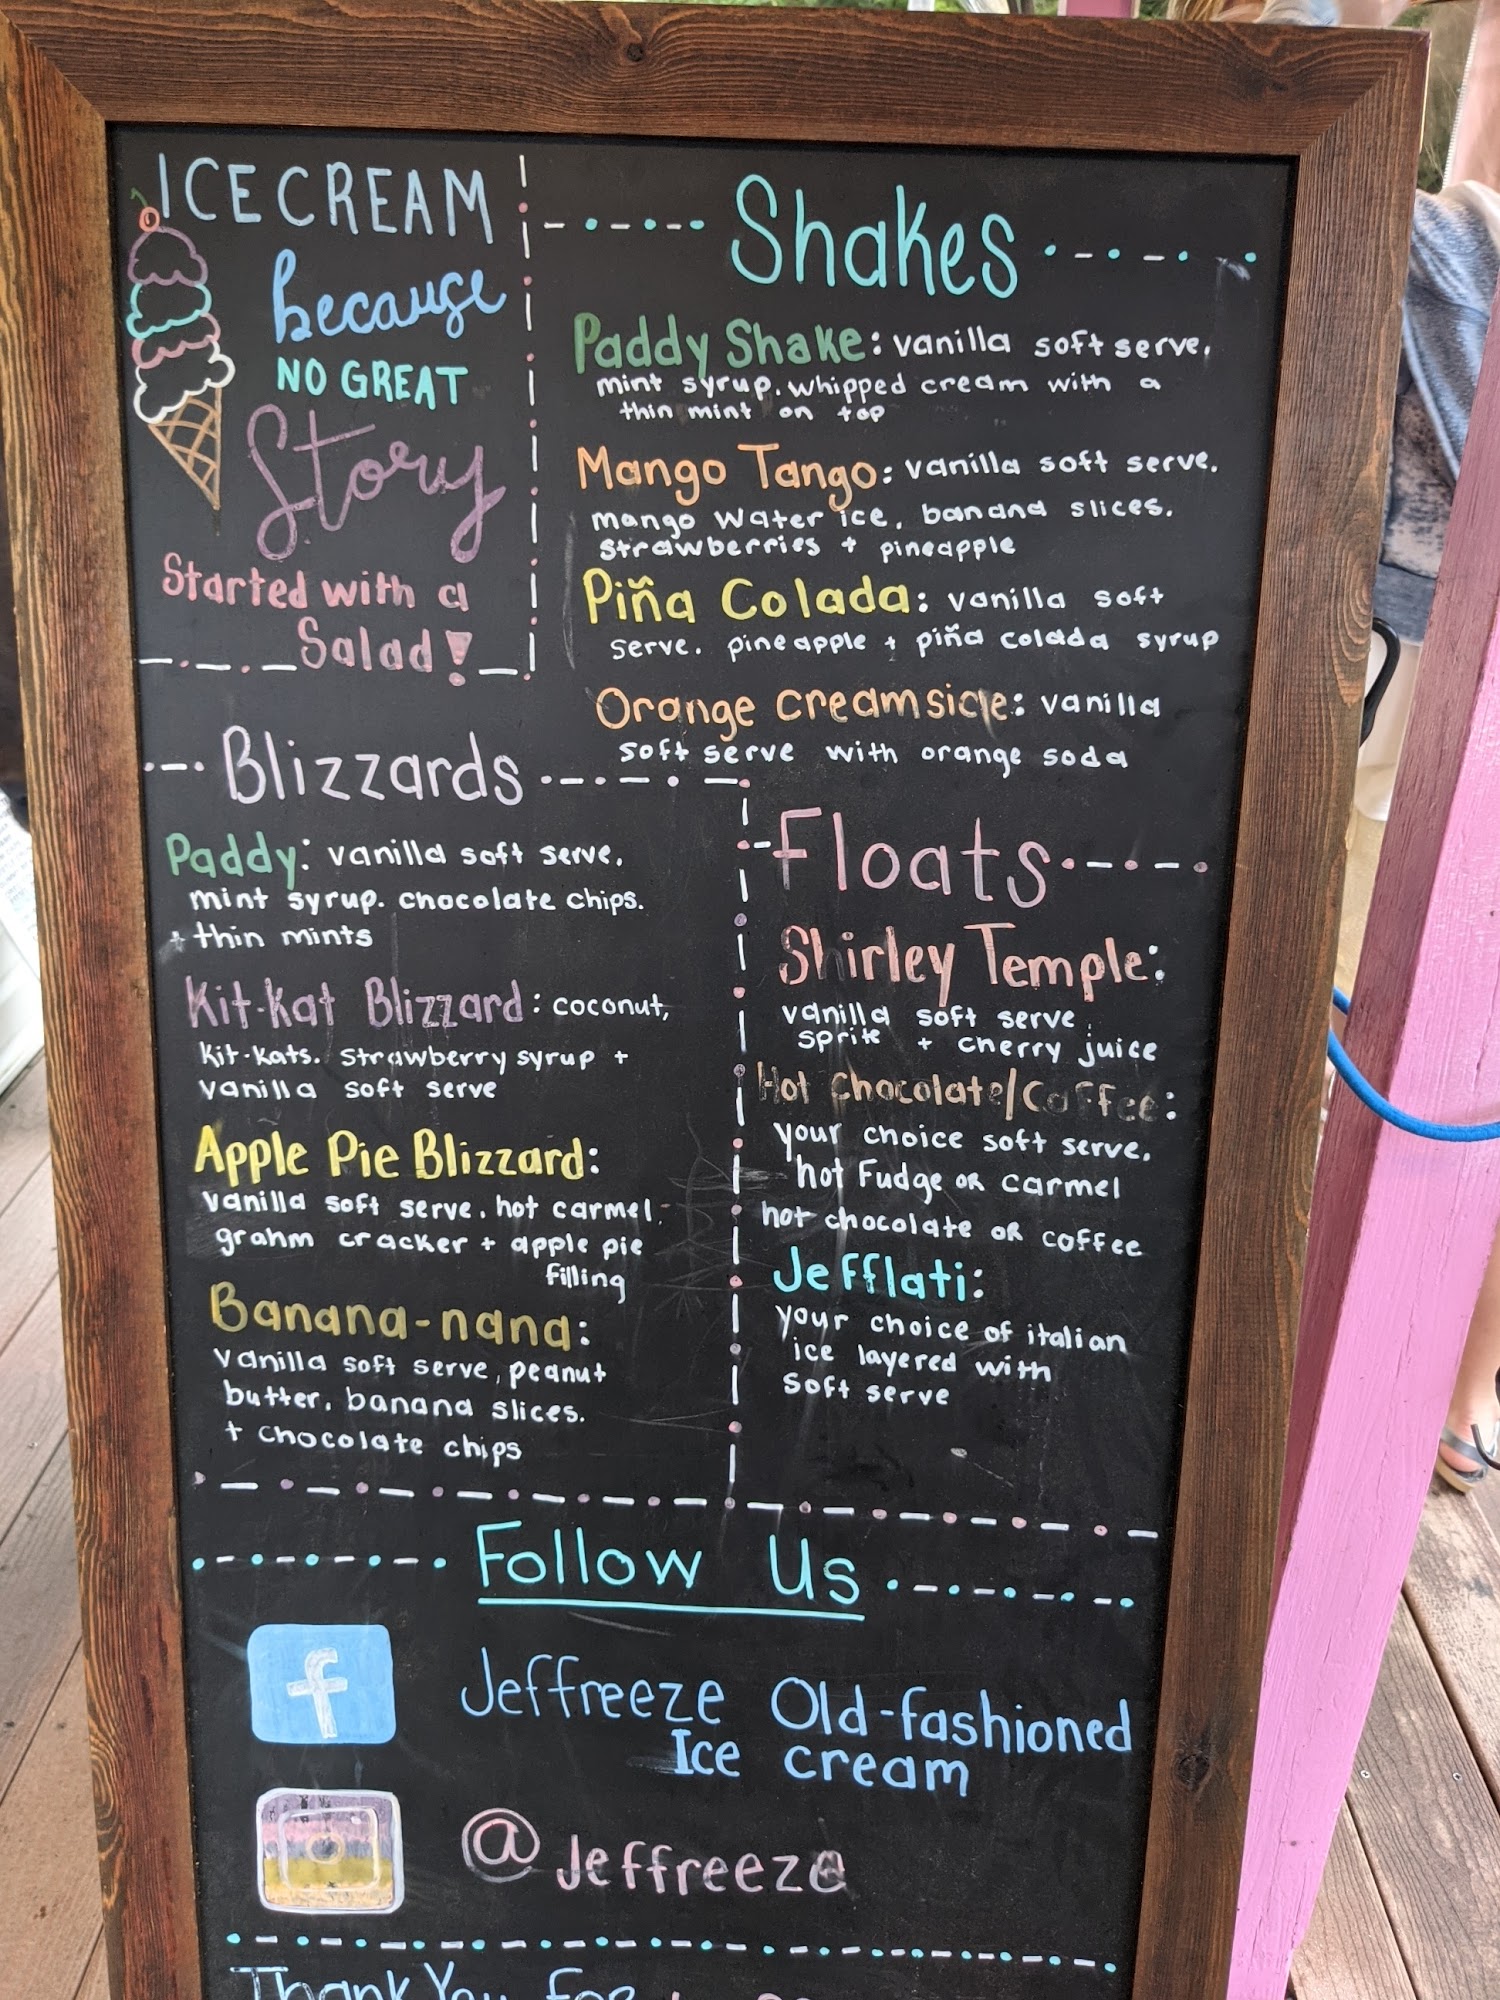 ICE CREAM
because
NO GREAT
Story
Started with a
Salad!
Shakes
Paddy Shake: vanilla soft serve,
mint syrup. whipped cream with a
thin mint on top
Mango Tango: vanilla soft serve.
mango water ice, banana slices.
strawberries + pineapple
Piña Colada: vanilla soft
serve. pineapple + piña colada syrup
Orange creamsicle: vanilla
soft serve with orange soda
Blizzards
Paddy: vanilla soft serve.
mint syrup. chocolate chips.
+ thin mints
Kit-Kat Blizzard: coconut,
kit-kats. strawberry syrup +
vanilla soft serve
Apple Pie Blizzard:
vanilla soft serve. hot carmel.
grahm cracker + apple pie
filling
Banana-nana:
vanilla soft serve, peanut
butter. banana slices.
+ chocolate chips
Floats
Shirley Temple:
vanilla soft serve
sprite + cherry juice
Hot Chocolate/Coffee:
your choice soft serve.
hot Fudge OR carmel
hot chocolate OR coffee
Jefflati:
your choice of italian
ice layered with
soft serve
Follow Us
f
Jeffreeze Old-fashioned
Ice cream
@jeffreeze
Thank You For